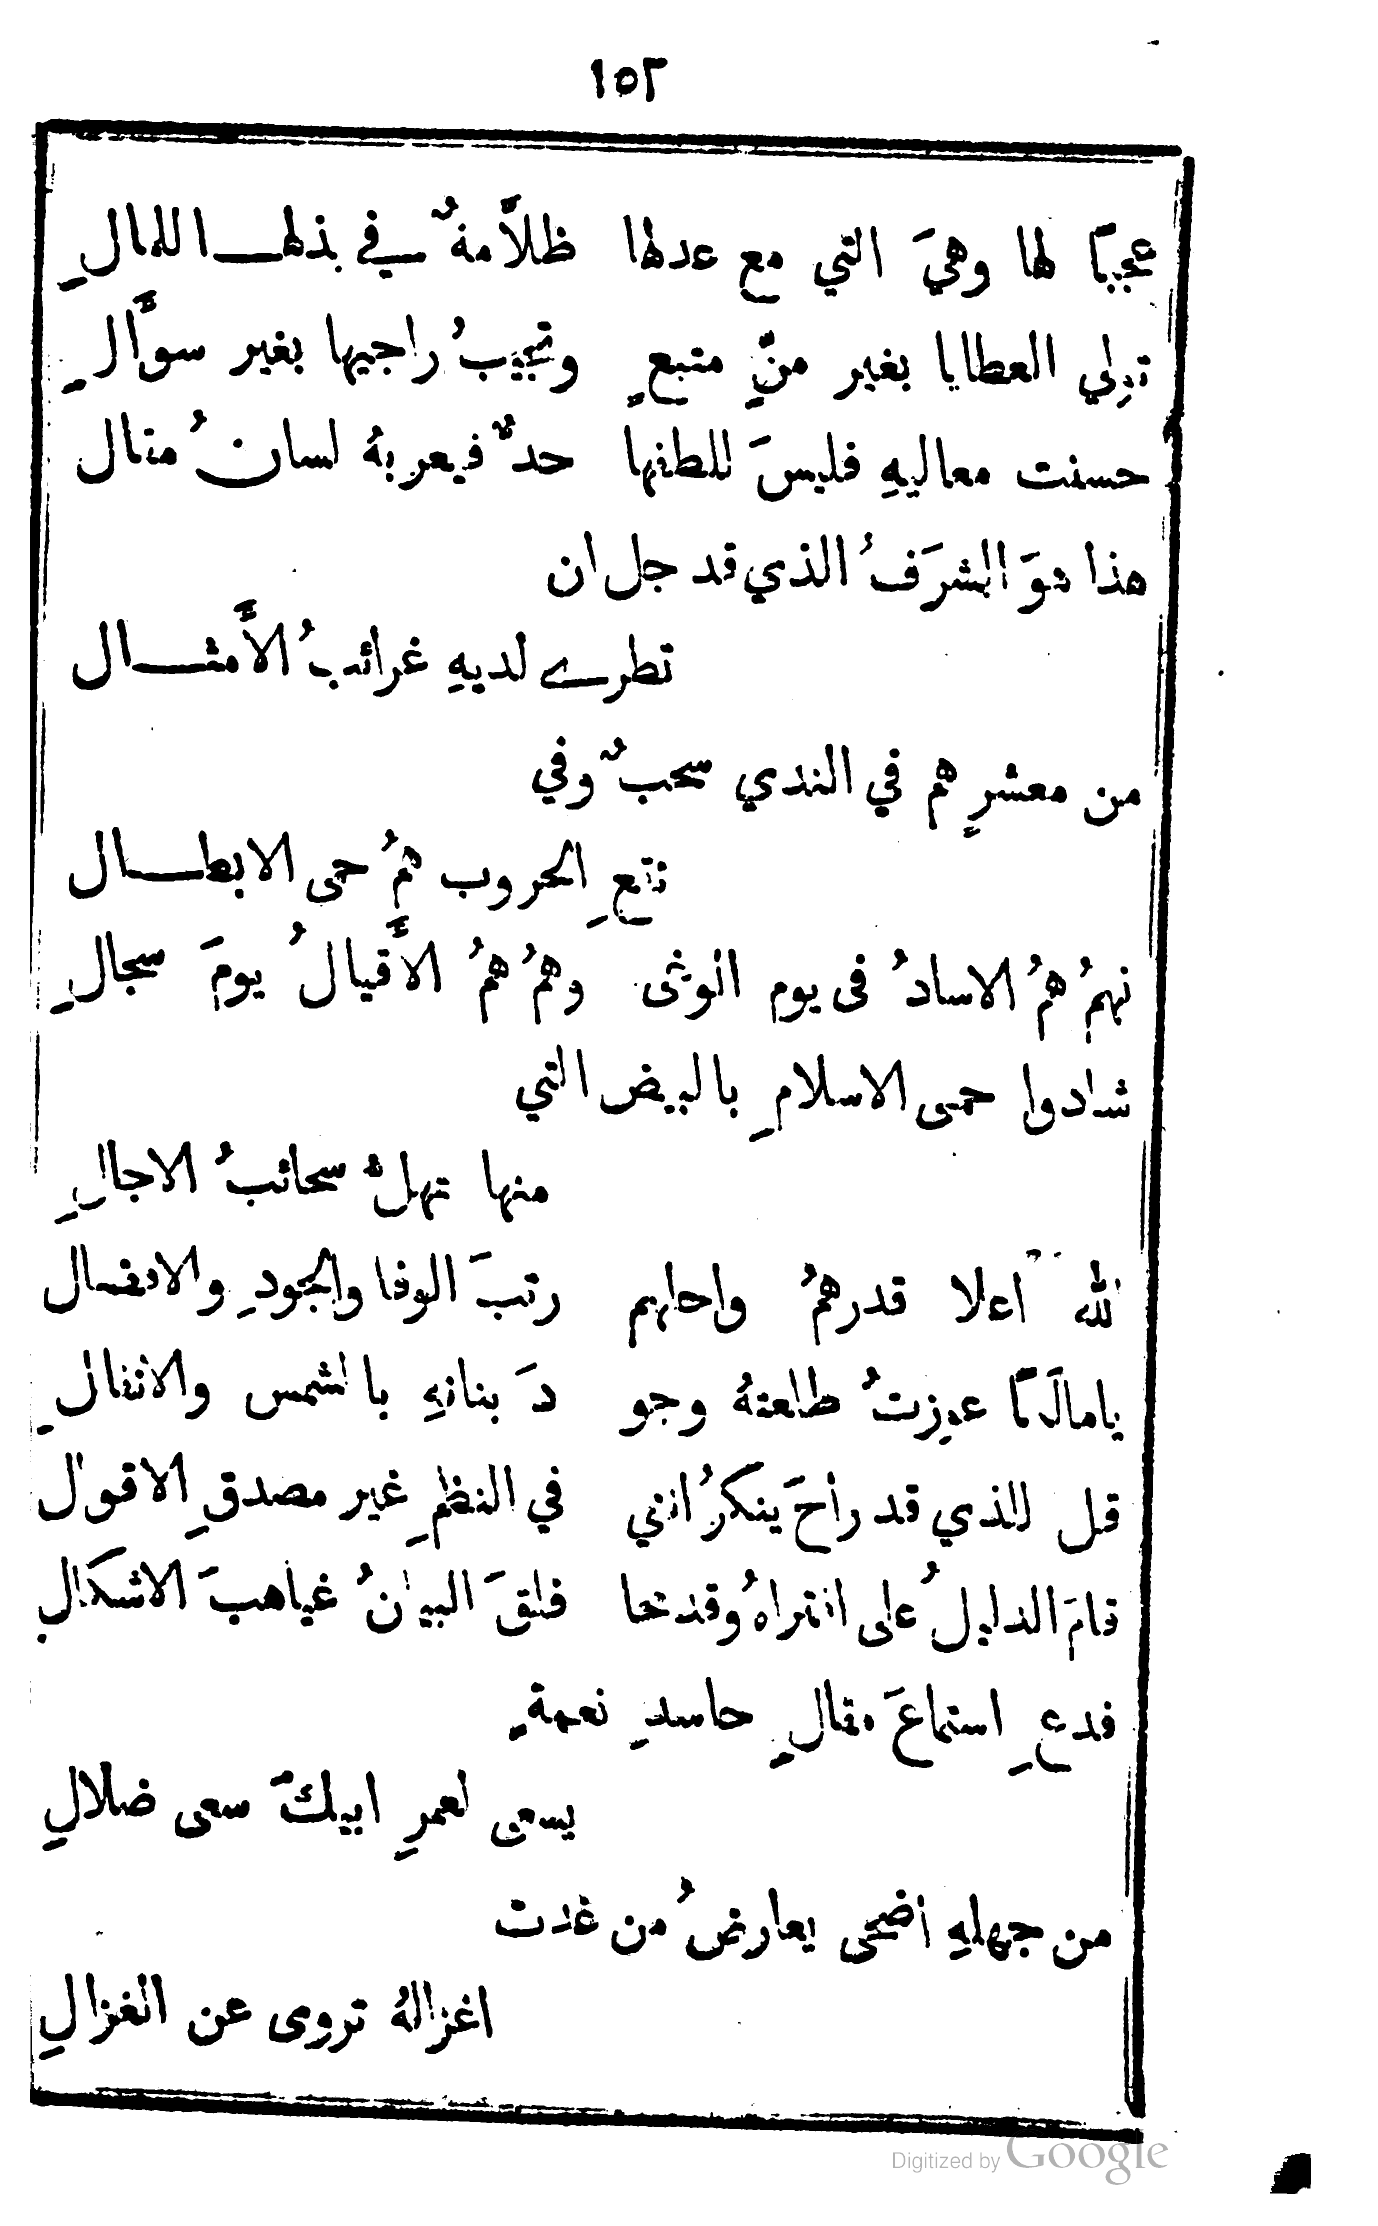 ١٥٢
عجبًا لها وهيَ التي مع عدلها ظلَّامةٌ في بذلها للمالِ
تولي العطايا بغير منٍّ متبعٍ وتجيبُ راجيها بغير سوَّالِ
حسنت معاليهِ فليسَ للطفها حدٌّ فيعربهُ لسانُ مقال
هذا هوَ الشرَفُ الذي قد جل ان
تطرے لديهِ غرائبُ الأَمثال
من معشرٍ هم في الندي سحبٌ وفي
نقعِ الحروب همُ حمى الابطال
فهمُ همُ الاسادُ فى يوم الوغى وهمُ همُ الأَقيالُ يومَ سجالِ
شادوا حمى الاسلامِ بالبيض التي
منها تهلُّ سحائبُ الاجالِ
لله اعلا قدرهمُ واحلهم رتبَ الوفا والجودِ والافضال
يامالكًا عوزتُ طلعتهُ وجو دَ بنانهِ بالشمس والانفالِ
قل للذي قد راحَ ينكرُ انني في النظمِ غير مصدقِ الاقوال
قامَ الدليلُ على افتراهُ وقد محا فلقَ البيانُ غياهبَ الاشكالِ
فدعِ استماعَ مقالِ حاسدِ نعمةٍ
يسعى لعمرِ ابيكَ سعى ضلالِ
من جهلهِ اضحى يعارضُ من غدت
اغزالهُ تروى عن الغزالِ
Digitized by Google